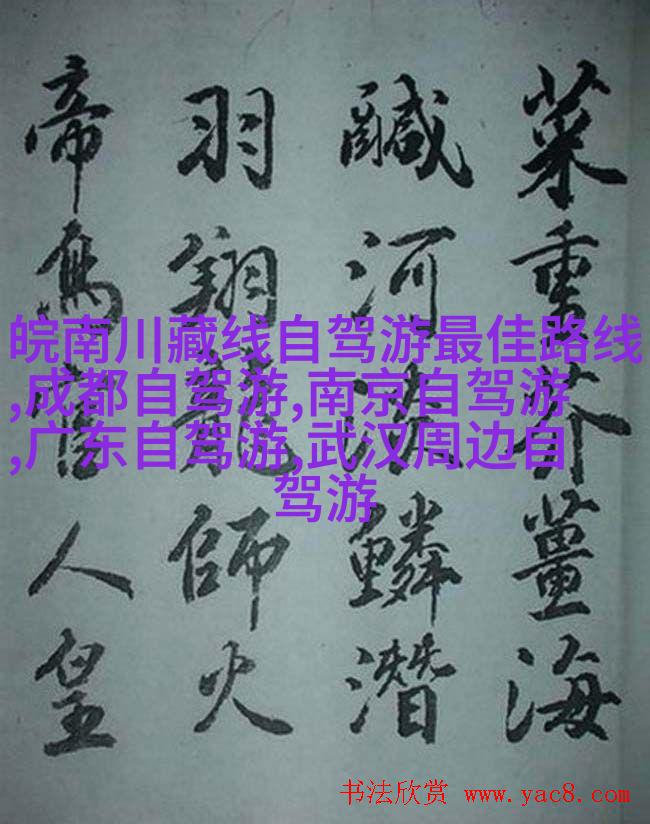 菜重芥薑海
鹹河淡鱗潛
羽翔龍師火
帝鳥官人皇
皖南川藏线自驾游最佳路线
,成都自驾游,南京自驾游
,广东自驾游,武汉周边自
驾游
书法欣赏 www.yac8.com